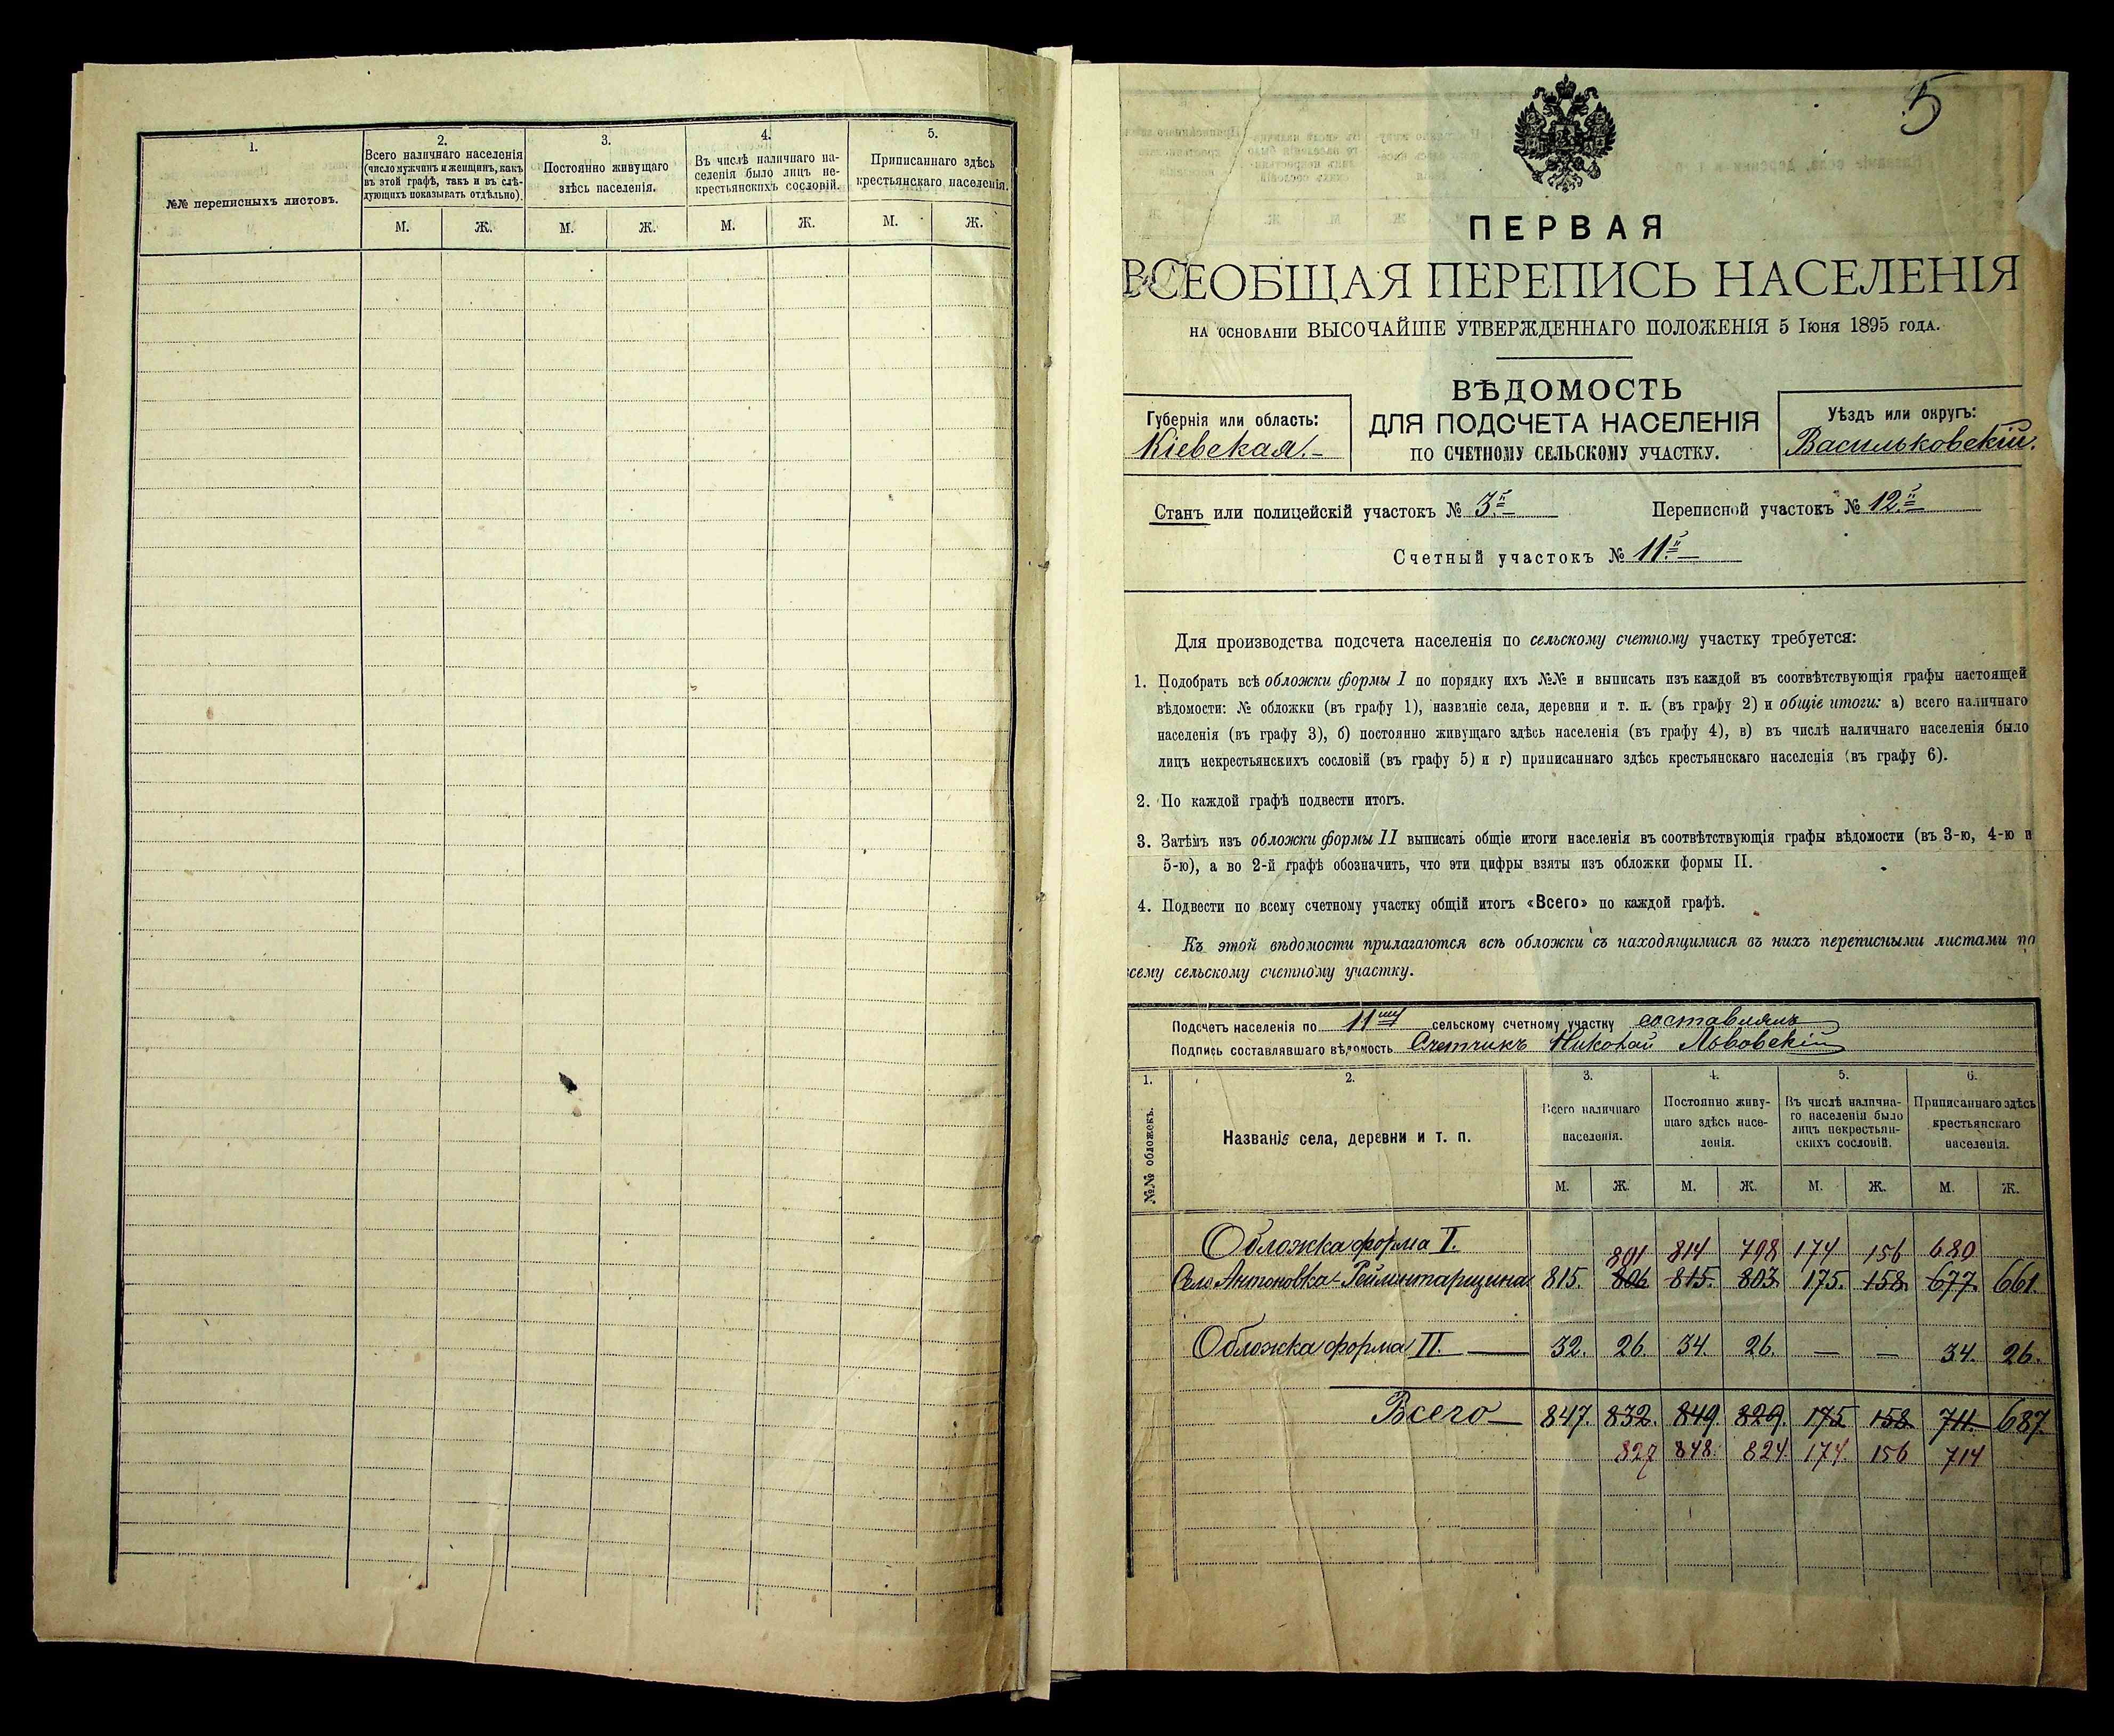 1.
2.
3.
4.
5.
№№ переписныхъ листовъ.
Всего наличнаго населенія
(число мужчинъ и женщинъ, какъ
въ этой графѣ, такъ и въ слѣ-
дующихъ показывать отдѣльно).
Постоянно живущаго
здѣсь населенія.
Въ числѣ наличнаго на-
селенія было лицъ не-
крестьянскихъ сословій.
Приписаннаго здѣсь
крестьянскаго населенія.
М. Ж. М. Ж. М. Ж. М. Ж.
5
ПЕРВАЯ
ВСЕОБЩАЯ ПЕРЕПИСЬ НАСЕЛЕНІЯ
НА ОСНОВАНІИ ВЫСОЧАЙШЕ УТВЕРЖДЕННАГО ПОЛОЖЕНІЯ 5 Іюня 1895 года.
ВѢДОМОСТЬ
ДЛЯ ПОДСЧЕТА НАСЕЛЕНІЯ
ПО СЧЕТНОМУ СЕЛЬСКОМУ УЧАСТКУ.
Губернія или область:
Кіевская.
Уѣздъ или округъ:
Васильковскій.
Станъ или полицейскій участокъ № 3.й Переписной участокъ № 12.й
Счетный участокъ № 11.й
Для производства подсчета населенія по сельскому счетному участку требуется:
1. Подобрать всѣ обложки формы I по порядку ихъ №№ и выписать изъ каждой въ соотвѣтствующія графы настоящей
вѣдомости: № обложки (въ графу 1), названіе села, деревни и т. п. (въ графу 2) и общіе итоги: а) всего наличнаго
населенія (въ графу 3), б) постоянно живущаго здѣсь населенія (въ графу 4), в) въ числѣ наличнаго населенія было
лицъ некрестьянскихъ сословій (въ графу 5) и г) приписаннаго здѣсь крестьянскаго населенія (въ графу 6).
2. По каждой графѣ подвести итогъ.
3. Затѣмъ изъ обложки формы II выписать общіе итоги населенія въ соотвѣтствующія графы вѣдомости (въ 3-ю, 4-ю и
5-ю), а во 2-й графѣ обозначить, что эти цифры взяты изъ обложки формы II.
4. Подвести по всему счетному участку общій итогъ «Всего» по каждой графѣ.
Къ этой вѣдомости прилагаются всѣ обложки съ находящимися въ нихъ переписными листами по
сему сельскому счетному участку.
Подсчетъ населенія по 11му сельскому счетному участку составлялъ
Подпись составлявшаго вѣдомость Счетчикъ Николай Львовскій
1.
2.
3.
4.
5.
6.
№№ обложекъ.
Названіе села, деревни и т. п.
Всего наличнаго
населенія.
Постоянно живу-
щаго здѣсь насе-
ленія.
Въ числѣ налична-
го населенія было
лицъ некрестьян-
скихъ сословій.
Приписаннаго здѣсь
крестьянскаго
населенія.
М. Ж. М. Ж. М. Ж. М. Ж.
Обложка форма I.
801 814 798 174 156 680
Село Антоновка-Рейментарщина 815. 806 815. 803. 175. 158. 677. 661.
Обложка форма II. — 32. 26. 34. 26. — — 34. 26.
Всего — 847. 832. 849. 829. 175 158 711. 687.
827 848. 824. 174. 156 714